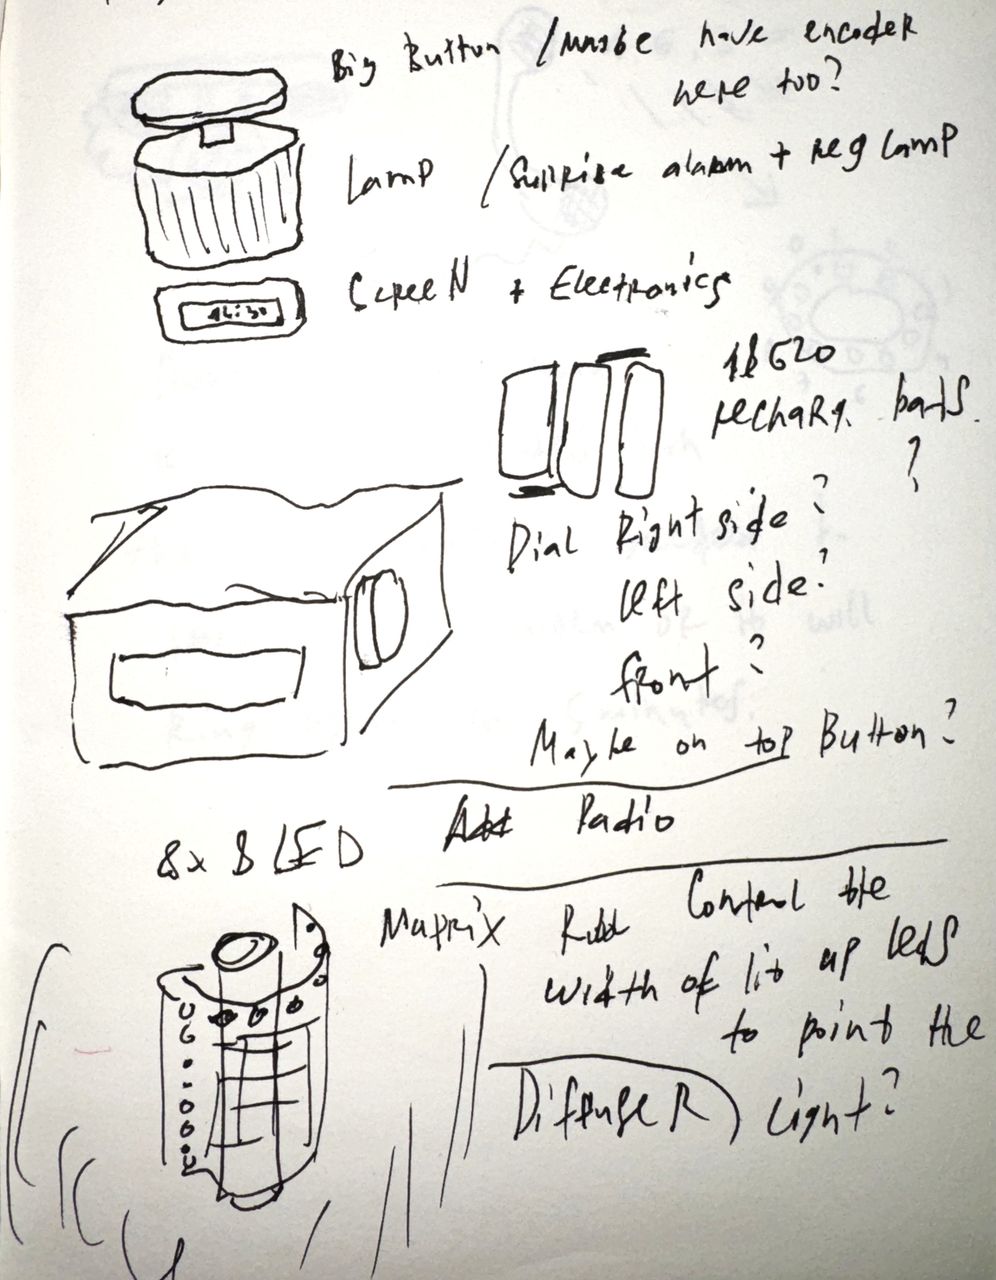 Big Button / maybe have encoder
here too?
Lamp / Sunrise alarm + reg lamp
Screen + Electronics
recharg. bats.
?
Dial Right side?
left side?
front?
Maybe on top Button?
Add Radio
8x8 LED
Matrix
Control the
width of lit up leds
to point the
light?
Diffuser